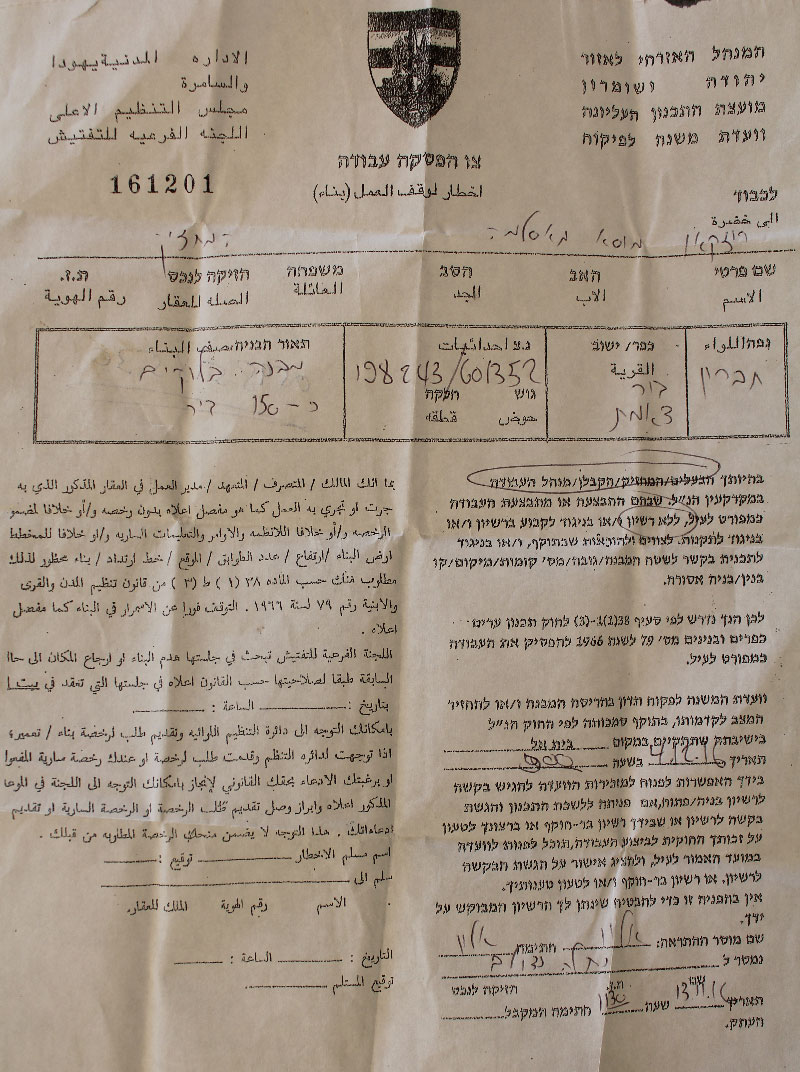 המנהל האזרחי לאזור
יהודה ושומרון
מועצת התכנון העליונה
וועדת משנה לפיקוח
الاداره المدنية يهودا
والسامرة
مجلس التنظيم الاعلى
اللجنه الفرعيه للتفتيش
צו הפסקת עבודה
اخطار لوقف العمل (بناء)
161201
לכבוד
الى حضرة
מוסא
שם פרטי האב הסב משפחה הזיקה לנכס ת.ז.
الاسم الاب الجد العائلة الصله للعقار رقم الهوية
נפה/اللواء
חברון
כפר/ישוב
القرية
נ.צ احداثيات
198243/601352
גוש חלקה
حوض قطعه
תאור הבניה/وصف البناء
מבנה בלוקים
כ-150
בהיותך הבעלים/המחזיק/הקבלן/מנהל העבודה
במקרקעין הנ"ל, שבהם התבצעה או מתבצעת העבודה
כמפורט לעיל, ללא רשיון ו/או בניגוד לקבוע ברשיון ו/או
בניגוד לתקנות, לצווים ולהוראות שבתוקף, ו/או בניגוד
לתכנית בקשר לשטח המבנה/גובה/מס' קומות/מיקום/קו
בנין/בניה אסורה.
לכן הנך נדרש לפי סעיף 38(1)-(3) לחוק תכנון ערים
כפרים ובנינים מס' 79 לשנת 1966 להפסיק את העבודה
כמפורט לעיל.
וועדת המשנה לפקוח תדון בהריסת המבנה ו/או להחזיר
המצב לקדמותו, בתוקף סמכותה לפי החוק הנ"ל
בישיבתה שתתקיים במקום בית אל
תאריך בשעה
בידך האפשרות לפנות למזכירות הוועדה להגיש בקשה
לרשיון בניה/פתוח, אם פניתה ללשכת התכנון והגשת
בקשה לרשיון או שבידך רשיון בר-תוקף או ברצונך לטעון
על זכותך החוקית לביצוע העבודה, תוכל לפנות לוועדה
במועד האמור לעיל, ולהציג אישור על הגשת הבקשה
לרשיון, או רשיון בר-תוקף ו/או לטעון טענותיך.
אין בהפניה זו כדי להבטיח שינתן לך הרשיון המבוקש על
ידך.
שם מוסר ההתראה: אלון חתימה אלון
נמסר ל
הזיקה לנכס
תאריך 13.11.16 שעה 1130 חתימה המקבל
העתק.
بما انك المالك / المتصرف / المتعهد / مدير العمل في العقار المذكور الذي به
جرت او تجري به العمل كما هو مفصل اعلاه بدون رخصه و/أو خلافا لمضمو
الرخصه و/أو خلافا اللانظمه والاوامر والتعليمات الساريه و/او خلافا للمخطط
ارض البناء /ارتفاع / عدد الطوابق / الموقع / خط ارتداد / بناء محظور لذلك
مطلوب منك حسب الماده ٣٨ (١) ط (٣) من قانون تنظيم المدن والقرى
والابنية رقم ٧٩ لسنة ١٩٦٦ . التوقف فورا عن الاسمرار في البناء كما مفصل
اعلاه .
اللجنة الفرعية للتفتيش تبحث في جلستها هدم البناء او ارجاع المكان الى حاا
السابقة طبقا لصلاحيتها حسب القانون اعلاه في جلستها التي تعقد في بيت ا
بتاريخ : الساعة :
بامكانك التوجه الى دائرة التنظيم اللوائيه وتقديم طلب لرخصة بناء / تعمير،
اذا توجهت لدائره التنظم وقدمت طلب لرخصة او عندك رخصة سارية المفعوا
او برغبتك الادعاء بحقك القانوني لإنجاز بامكانك التوجه الى اللجنة في الموعا
المذكور اعلاه وابراز وصل تقديم طلب الرخصة او الرخصة السارية او تقديم
ادعاءاتك . هذا التوجه لا يضمن منحك الرخصة المطلوبه من قبلك .
اسم مسلم الاخطار توقيع :
سلم الى
الاسم رقم الهوية الملك للعقار.
التاريخ : الساعة :
توقيع المستلم